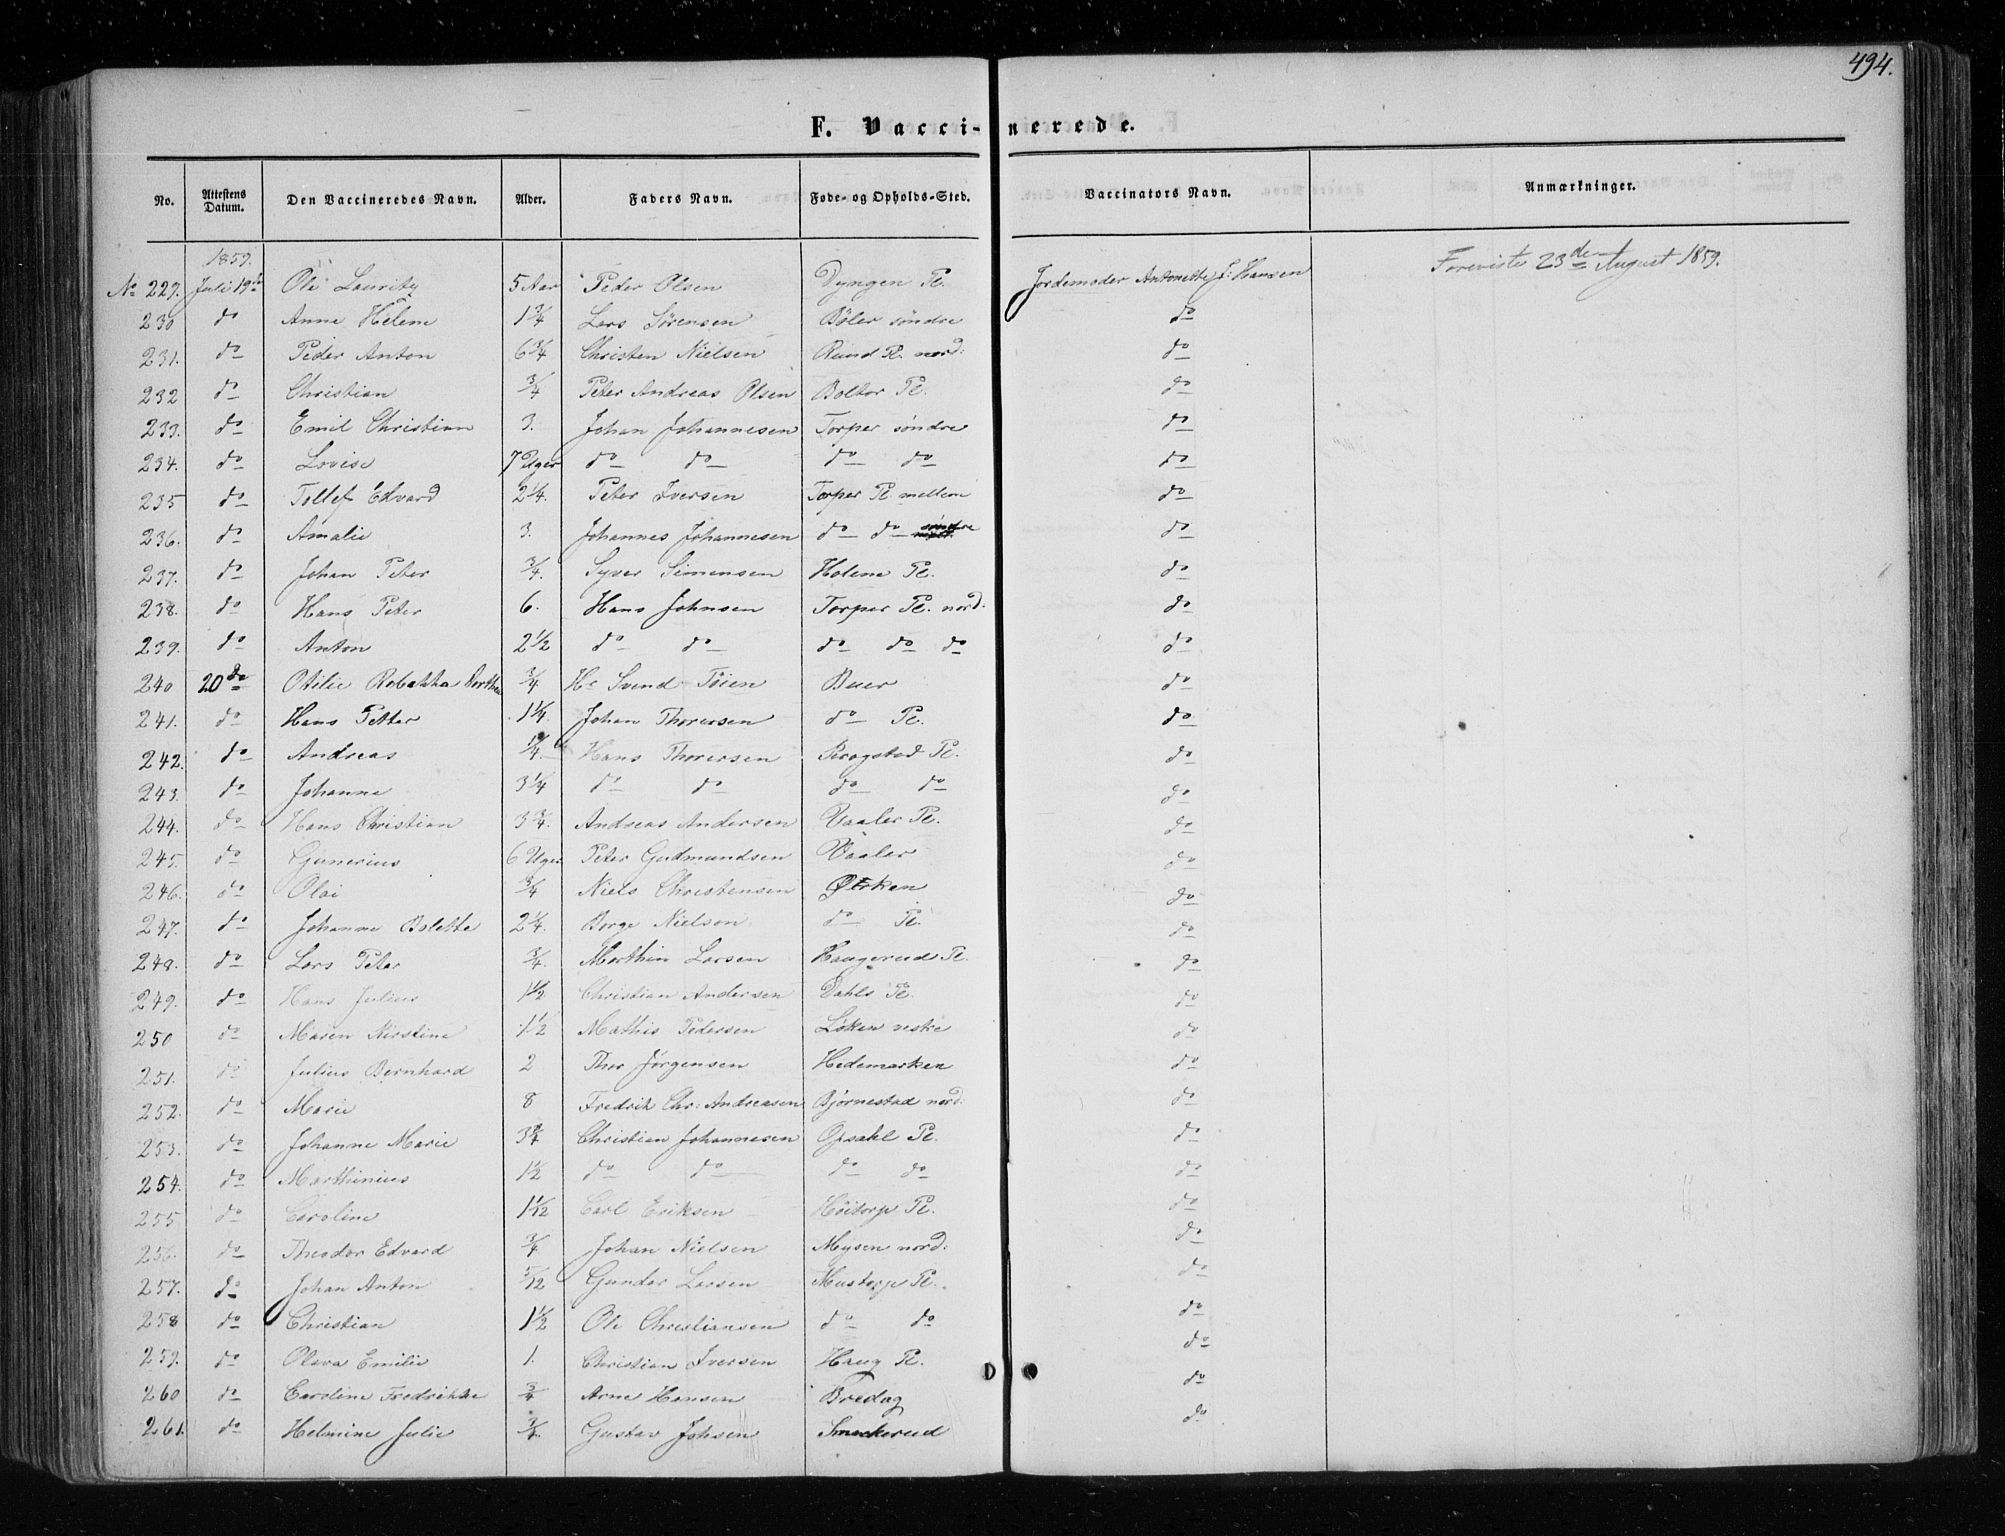 494.
F. Vaccinerede.
No. | Attestens Datum. | Den Vaccineredes Navn. | Alder. | Faders Navn. | Føde- og Opholds-Sted. | Vaccinators Navn. | Anmærkninger.
1859.
No 229. | Juli 19de | Ole Lauritz | 5 Aar | Peder Olsen | Dyngen Pl. | Jordemoder Antonette J: Hansen | Foreviste 23de August 1859.
230 | do | Anne Helene | 1 3/4 | Lars Sørensen | Bøler søndre | do
231. | do | Peder Anton | 6 3/4 | Christen Nielsen | Rund Pl. nord: | do
232 | do | Christian | 3/4 | Peter Andreas Olsen | Boltor Pl. | do
233. | do | Emil Christian | 3. | Johan Johannesen | Torper søndre | do
234. | do | Lovise | 7 Uger | do do | do do | do
235 | do | Tollef Edvard | 2 1/4. | Peter Iversen | Torper Pl mellem | do
236. | do | Amalie | 3. | Johannes Johannesen | do do søndre | do
237. | do | Johan Peter | 3/4. | Syver Simensen | Holene Pl. | do
238. | do | Hans Peter | 6. | Hans Johnsen | Torper Pl. nord: | do
239. | do | Anton | 2 1/2 | do do | do do do | do
240 | 20de | Otilie Rebekka Dorthea | 3/4 | Hr Svend Tøien | Buer | do
241. | do | Hans Petter | 1 1/4. | Johan Thorersen | do Pl. | do
242. | do | Andreas | 1/4. | Hans Thorersen | Kragstad Pl. | do
243. | do | Johanne | 3 1/4 | do do | do do | do
244. | do | Hans Christian | 3 3/4. | Andreas Andersen | Vaaler Pl. | do
245. | do | Gunerius | 6 Uger | Peter Gudmundsen | Vaaler | do
246. | do | Olai | 3/4 | Niels Christensen | Ørken | do
247. | do | Johanne Bolette | 2 1/4. | Borge Nielsen | do Pl. | do
248. | do | Lars Peter | 3/4. | Marthin Larsen | Haugerud Pl. | do
249. | do | Hans Julius | 1 1/2 | Christian Andersen | Dahls Pl. | do
250 | do | Maren Kirstine | 1 1/2 | Mathis Pedersen | Løken vestre | do
251. | do | Julius Bernhard | 2 | Thor Jørgensen | Hedemarken | do
252. | do | Marie | 8 | Fredrik Chr: Andreasen | Bjørnestad nord: | do
253. | do | Johanne Marie | 3 3/4 | Christian Johannesen | Opsahl Pl. | do
254. | do | Marthinius | 1 1/2 | do do | do do | do
255 | do | Caroline | 1 1/12 | Carl Eriksen | Høitorp Pl. | do
256. | do | Theodor Edvard | 3/4 | Johan Nielsen | Mysen nord: | do
257. | do | Johan Anton | 5/12 | Gunder Larsen | Mustorp Pl. | do
258 | do | Christian | 1 1/2 | Ole Christiansen | do do | do
259. | do | Olava Emilie | 1. | Christian Iversen | Haug Pl. | do
260 | do | Caroline Fredrikke | 3/4 | Arne Hansen | Bredag | do
261. | do | Helmine Julie | 3/4. | Gustav Johsen | Smedkerud | do